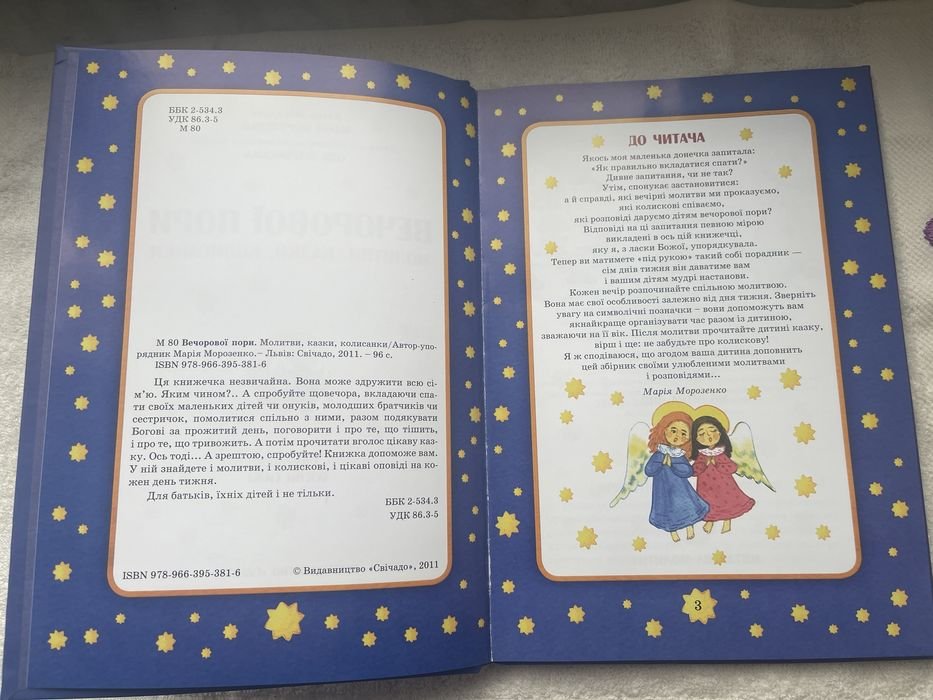 ББК 2-534.3
УДК 86.3-5
М 80
М 80 Вечорової пори. Молитви, казки, колисанки/Автор-упо-
рядник Марія Морозенко.– Львів: Свічадо, 2011. – 96 с.
ISBN 978-966-395-381-6
Ця книжечка незвичайна. Вона може здружити всю сі-
м’ю. Яким чином?.. А спробуйте щовечора, вкладаючи спа-
ти своїх маленьких дітей чи онуків, молодших братчиків чи
сестричок, помолитися спільно з ними, разом подякувати
Богові за прожитий день, поговорити і про те, що тішить,
і про те, що тривожить. А потім прочитати вголос цікаву каз-
ку. Ось тоді... А зрештою, спробуйте! Книжка допоможе вам.
У ній знайдете і молитви, і колискові, і цікаві оповіді на ко-
жен день тижня.
Для батьків, їхніх дітей і не тільки.
ББК 2-534.3
УДК 86.3-5
ISBN 978-966-395-381-6
© Видавництво «Свічадо», 2011
ДО ЧИТАЧА
Якось моя маленька донечка запитала:
«Як правильно вкладатися спати?»
Дивне запитання, чи не так?
Утім, спонукає застановитися:
а й справді, які вечірні молитви ми проказуємо,
які колискові співаємо,
які розповіді даруємо дітям вечорової пори?
Відповіді на ці запитання певною мірою
викладені в ось цій книжечці,
яку я, з ласки Божої, упорядкувала.
Тепер ви матимете «під рукою» такий собі порадник —
сім днів тижня він даватиме вам
і вашим дітям мудрі настанови.
Кожен вечір розпочинайте спільною молитвою.
Вона має свої особливості залежно від дня тижня. Зверніть
увагу на символічні позначки – вони допоможуть вам
якнайкраще організувати час разом із дитиною,
зважаючи на її вік. Після молитви прочитайте дитині казку,
вірш і ще: не забудьте про колискову!
Я ж сподіваюся, що згодом ваша дитина доповнить
цей збірник своїми улюбленими молитвами
і розповідями...
Марія Морозенко
3